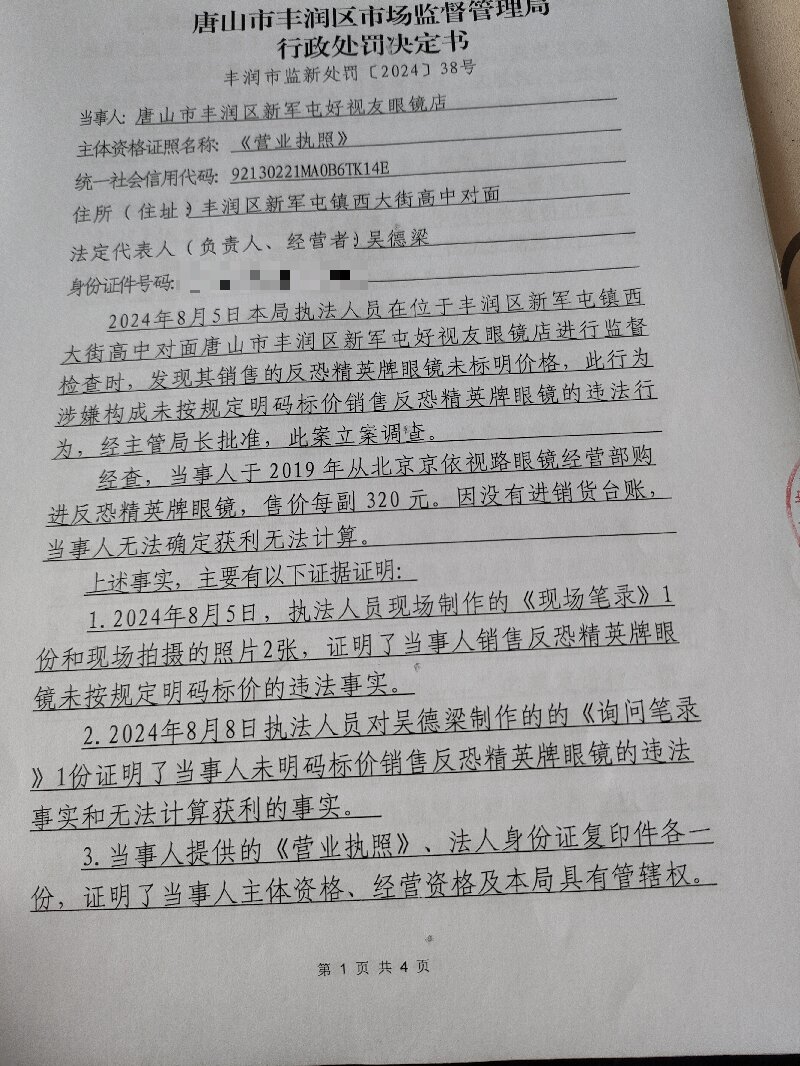 唐山市丰润区市场监督管理局
行政处罚决定书
丰润市监新处罚〔2024〕38号
当事人：唐山市丰润区新军屯好视友眼镜店
主体资格证照名称：《营业执照》
统一社会信用代码：92130221MA0B6TK14E
住所（住址）丰润区新军屯镇西大街高中对面
法定代表人（负责人、经营者）吴德梁
身份证件号码：
2024年8月5日本局执法人员在位于丰润区新军屯镇西
大街高中对面唐山市丰润区新军屯好视友眼镜店进行监督
检查时，发现其销售的反恐精英牌眼镜未标明价格，此行为
涉嫌构成未按规定明码标价销售反恐精英牌眼镜的违法行
为，经主管局长批准，此案立案调查。
经查，当事人于2019年从北京京依视路眼镜经营部购
进反恐精英牌眼镜，售价每副320元。因没有进销货台账，
当事人无法确定获利无法计算。
上述事实，主要有以下证据证明：
1.2024年8月5日，执法人员现场制作的《现场笔录》1
份和现场拍摄的照片2张，证明了当事人销售反恐精英牌眼
镜未按规定明码标价的违法事实。
2.2024年8月8日执法人员对吴德梁制作的的《询问笔录
》1份证明了当事人未明码标价销售反恐精英牌眼镜的违法
事实和无法计算获利的事实。
3.当事人提供的《营业执照》、法人身份证复印件各一
份，证明了当事人主体资格、经营资格及本局具有管辖权。
第 1 页 共 4 页